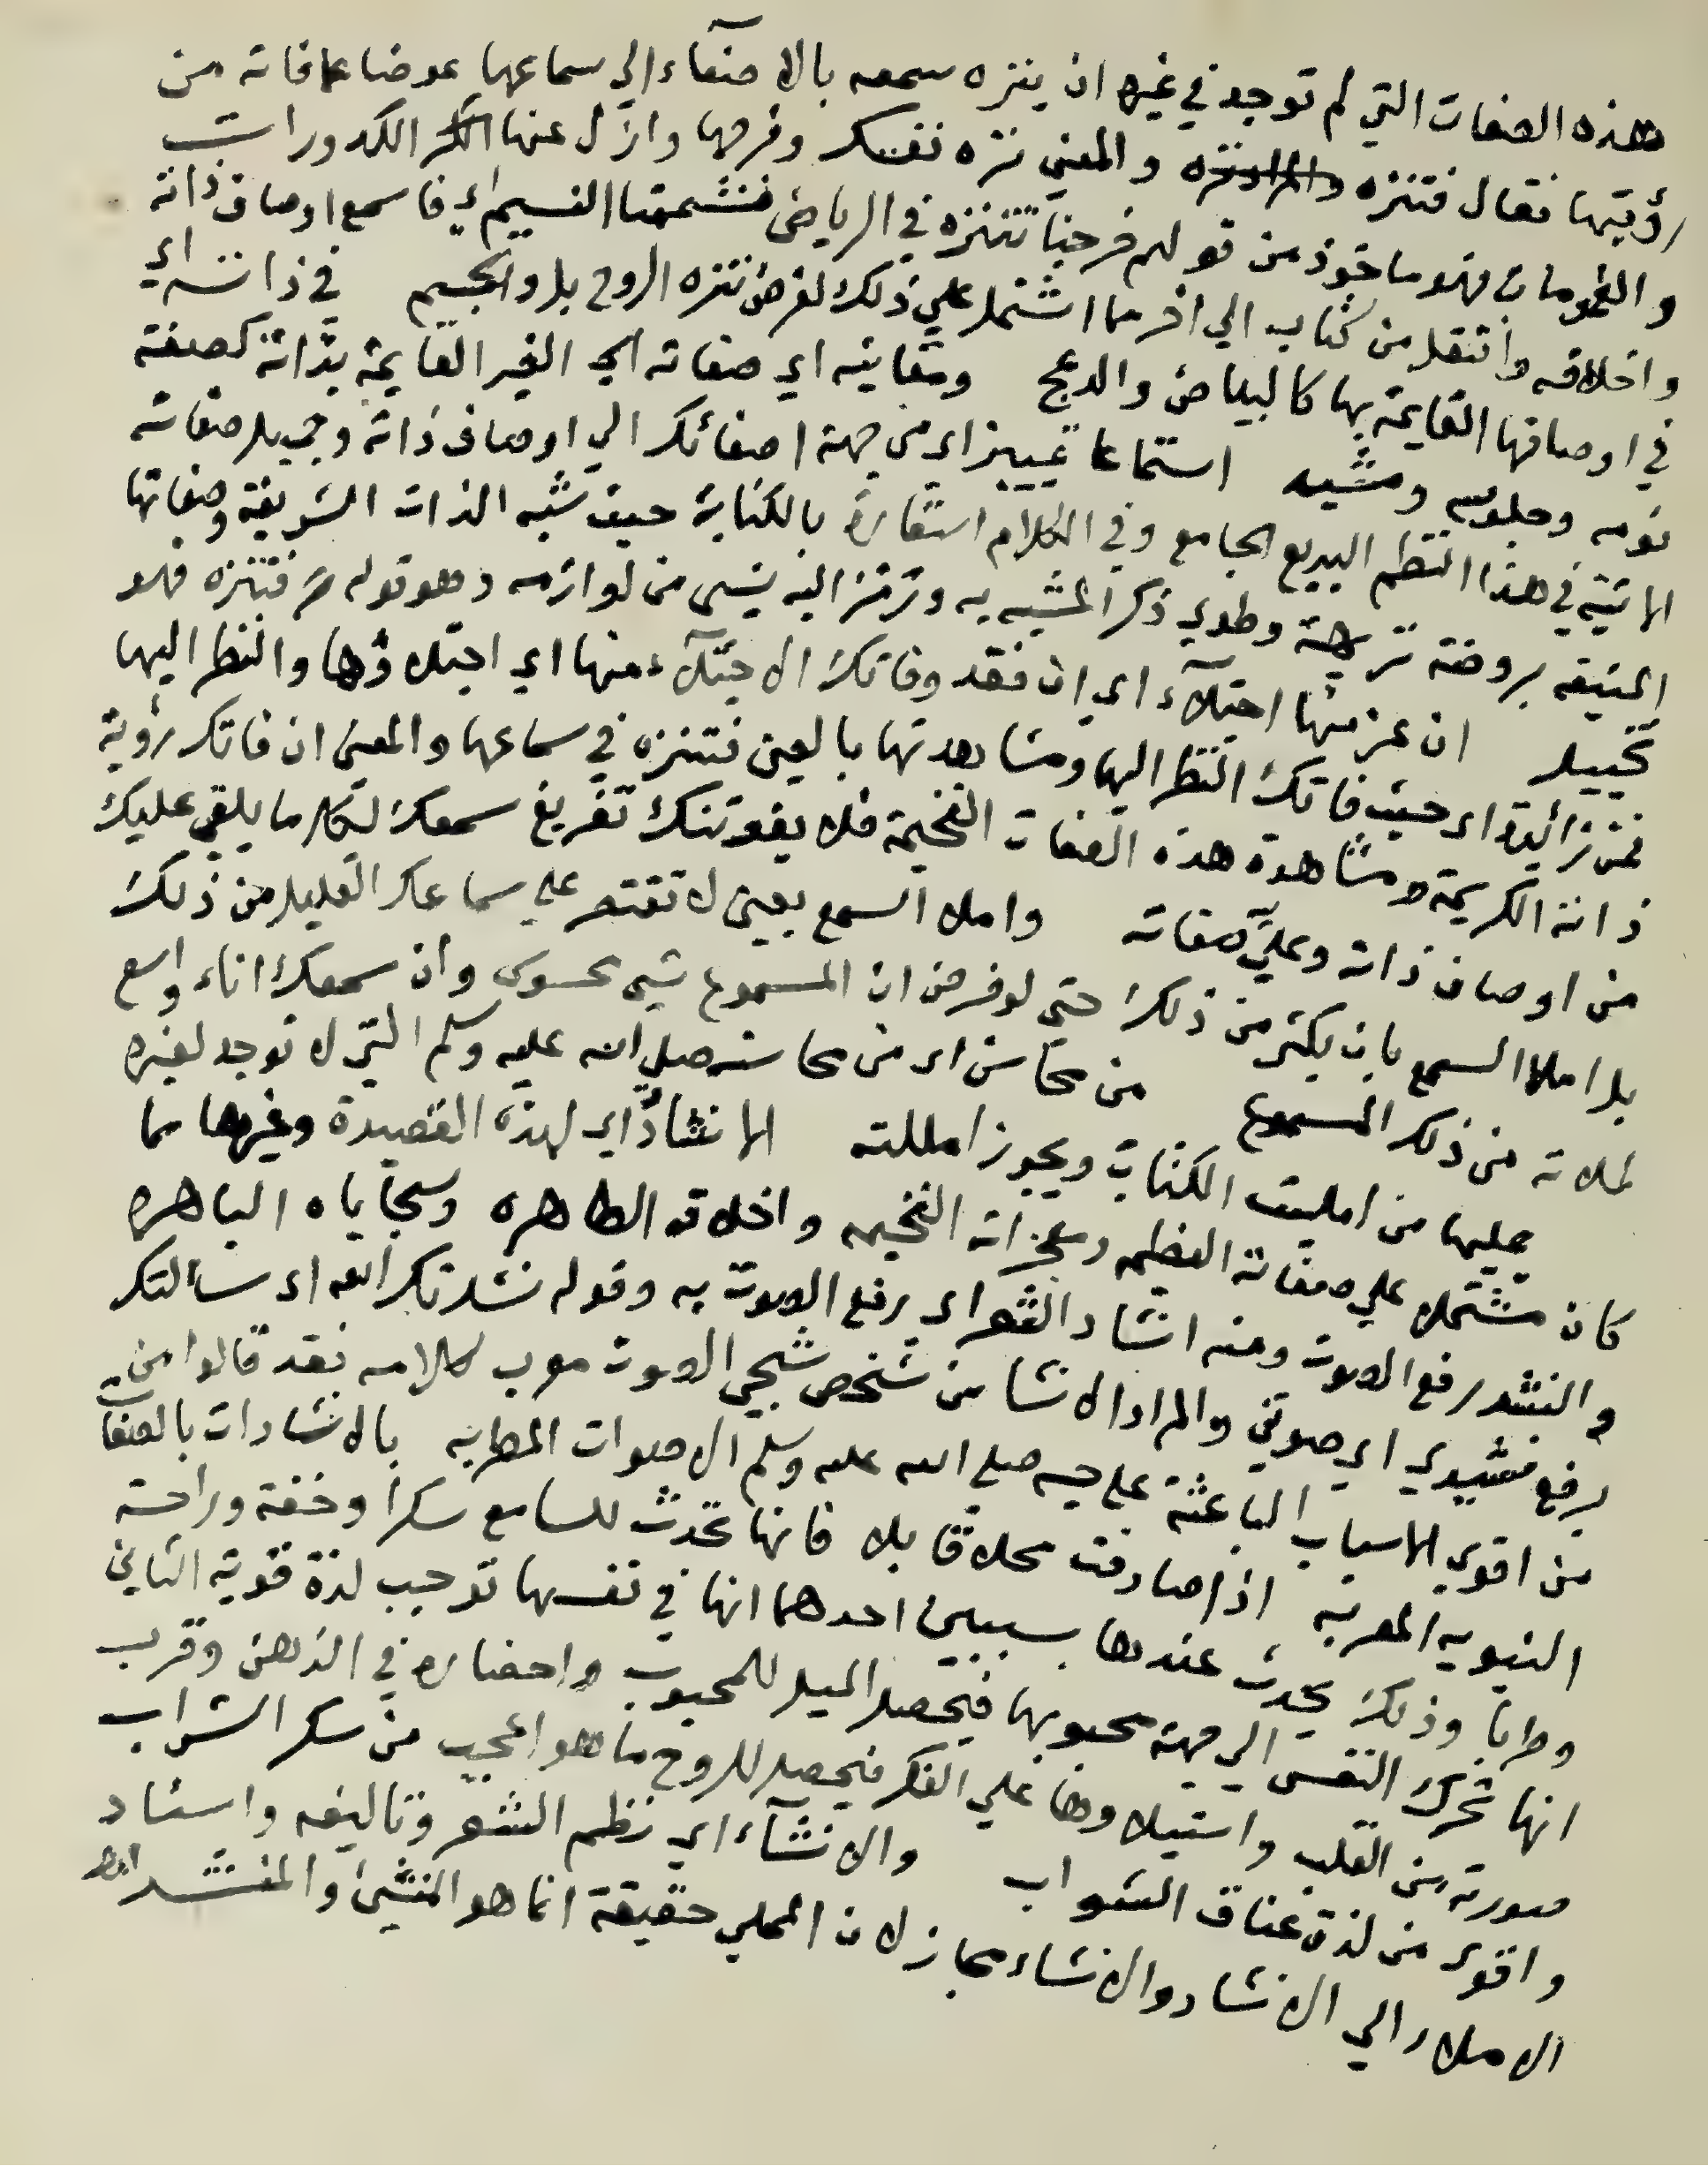 هذه الصفات التي لم توجد في غيره ان ينزه سمعه بالاصغآء الي سماعها عوضا عما فاته من
رؤيتها فقال فتنزه والمعني نزه نفسك وفرحها وازل عنها الكدورات
والهمومات فهو ماخوذ من قولهم خرجنا نتنزه في الرياض فنشمنا النسيم اي فاسمع اوصاف ذاته
واخلاقه وانتقل من كتاب الي اخر مما اشتمل علي ذلك لغرض تنزه الروح بل والجسيم في ذاته اي
في اوصافها القايمة بها كالبياض والدعج ومعانيه اي صفاته اي الغير القايمة بذاته كصفة
نومه وجلوسه ومشيه استماعا تمييز اي من جهة اصغائك الي اوصاف ذاته وجميل صفاته
الاتية في هذا النظم البديع الجامع وفي الكلام استعارة بالكناية حيث شبه الذات الشريفة وصفاتها
المنيفه بروضة نزهة وطوي ذكر المشبه به ورمز اليه بشي من لوازمه وهو قوله فتنزه فهو
تخييل ان عز منها اجتلآء اي ان فقد وفاتك الاجتلآء منها اي اجتلاؤها والنظر اليها
فمن اي حيث فاتك النظر اليها ومشاهدتها بالعين فتنزه في سماعها والمعني ان فاتك رؤية
ذاته الكريمة ومشاهدة هذه الصفات الفخيمة فلا يفوتنك تفريغ سمعك لكل ما يلقي عليك
من اوصاف ذاته وعليّ صفاته واملا السمع يعني لا تقتصر علي سماعك القليل من ذلك
بل املا السمع بان يكثر من ذلك حتي لو فرض ان المسموع شي محسوس وان سمعك اناء واسع
لملاته من ذلك المسموع من محاسن اي من محاسنه صلي الله عليه وسلم التي لا توجد لغيره
يمليها من امليت الكتاب ويجوز امللته الانشاد اي لهذه القصيدة وغيرها مما
كان مشتملا علي صفاته العظيمه ومعجزاته الفخيمه واخلاقه الطاهره وسجاياه الباهره
والنشد رفع الصوت ومنه انشاد الشعر اي رفع الصوت به وقوله نشدتك الله اي سالتك
برفع نشيدي اي صوتي والمراد الانشا من شخص شجي الصوت كلامه فقد قالوا من
من اقوي الاسباب الباعثة علي حبه صلي الله عليه وسلم الاصوات المطربه بالانشادات بالصفات
النبويه المعربه اذا صادفت محلا قابلا فانها تحدث للسامع سكرا وخفة وراحة
وطربا وذلك يحدث عندها بسببين احدهما انها في نفسها توجب لذة قوية الثاني
انها تحرك النفس الي جهة محبوبها فيحصل الميل للمحبوب واحضاره في الذهن وقرب
صورته من القلب واستيلاوها علي الفكر فيحصل للروح ما هو اعجب من سكر الشراب
واقوي من لذة عناق الشواب والانشآء اي نظم الشعر وتاليفه واسناد
الاملاء الي الانشاد والانشاء مجاز لان المملي حقيقة انما هو المنشئ والمنشد